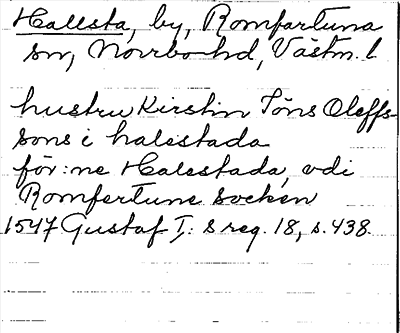 Hallsta, by, Romfartuna
sn, Norrbo hd, Västm. l
hustru Kirstin Jöns Oleffs-
sons i halestada
för:ne Halestada, vdi
Romfertune socken
1547 Gustaf I:s reg. 18, s. 438.